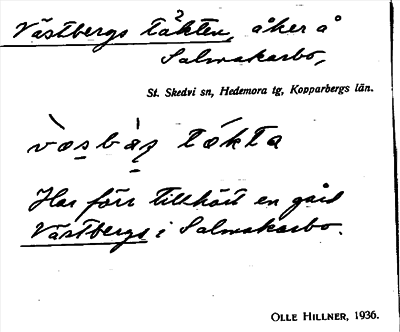 Västbergs täkten, åker å
Salmakarbo,
St. Skedvi sn, Hedemora tg, Kopparbergs län.
våsbàs tákta
Har förr tillhört en gård
Västbergs i Salmakarbo.
OLLE HILLNER, 1936.